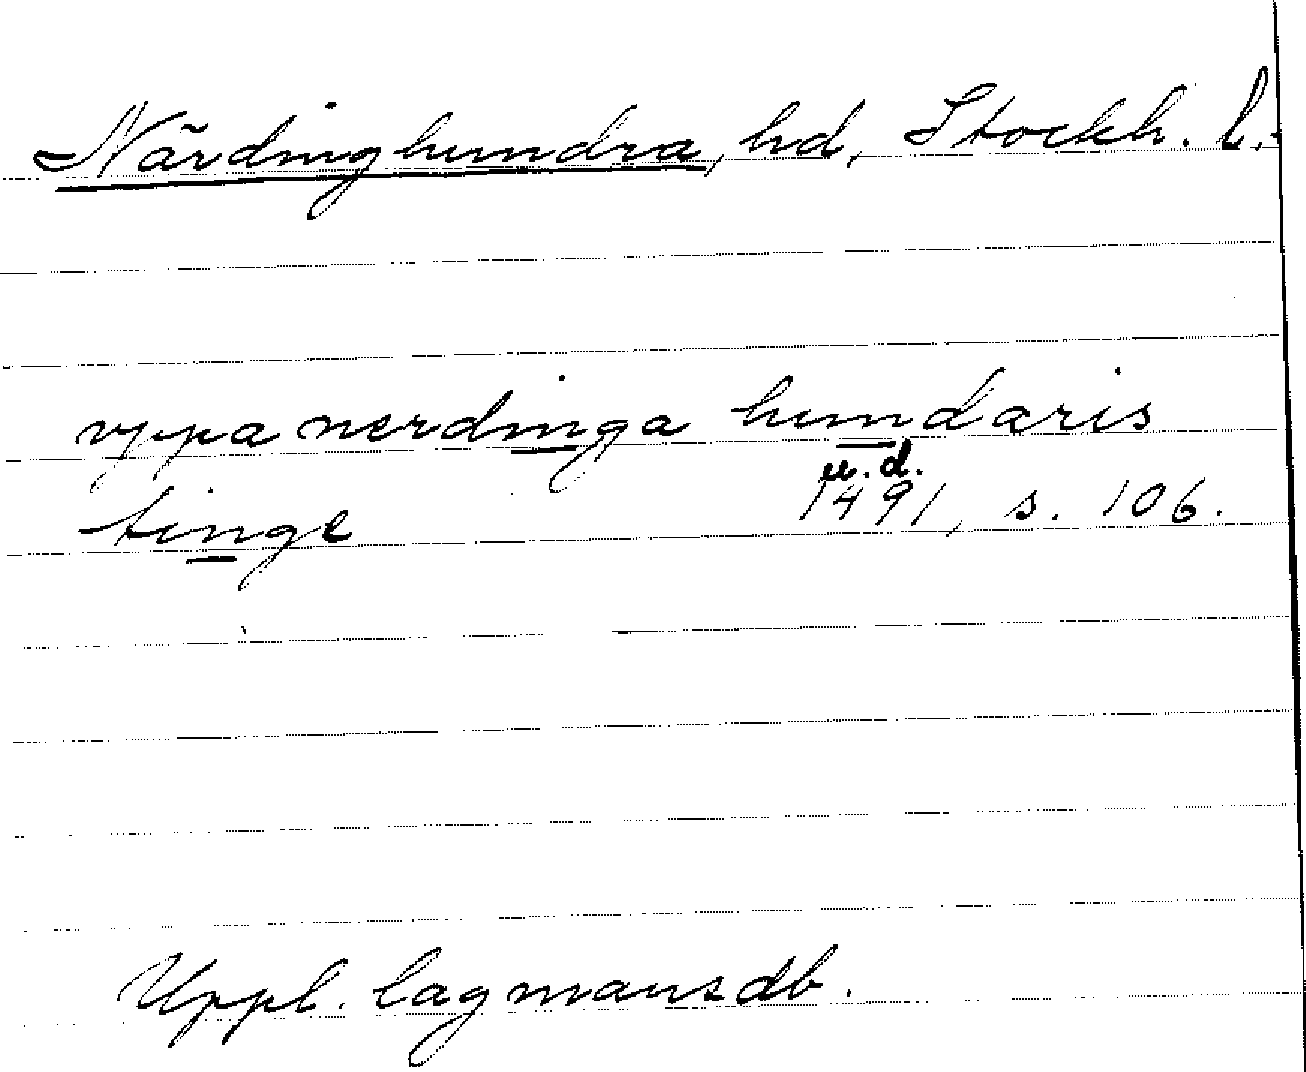 Närdinghundra, hd, Stockh. l.
vppa nerdinga hundaris
u.d.
tinge 1491, s. 106.
Uppl. lagmansdb.